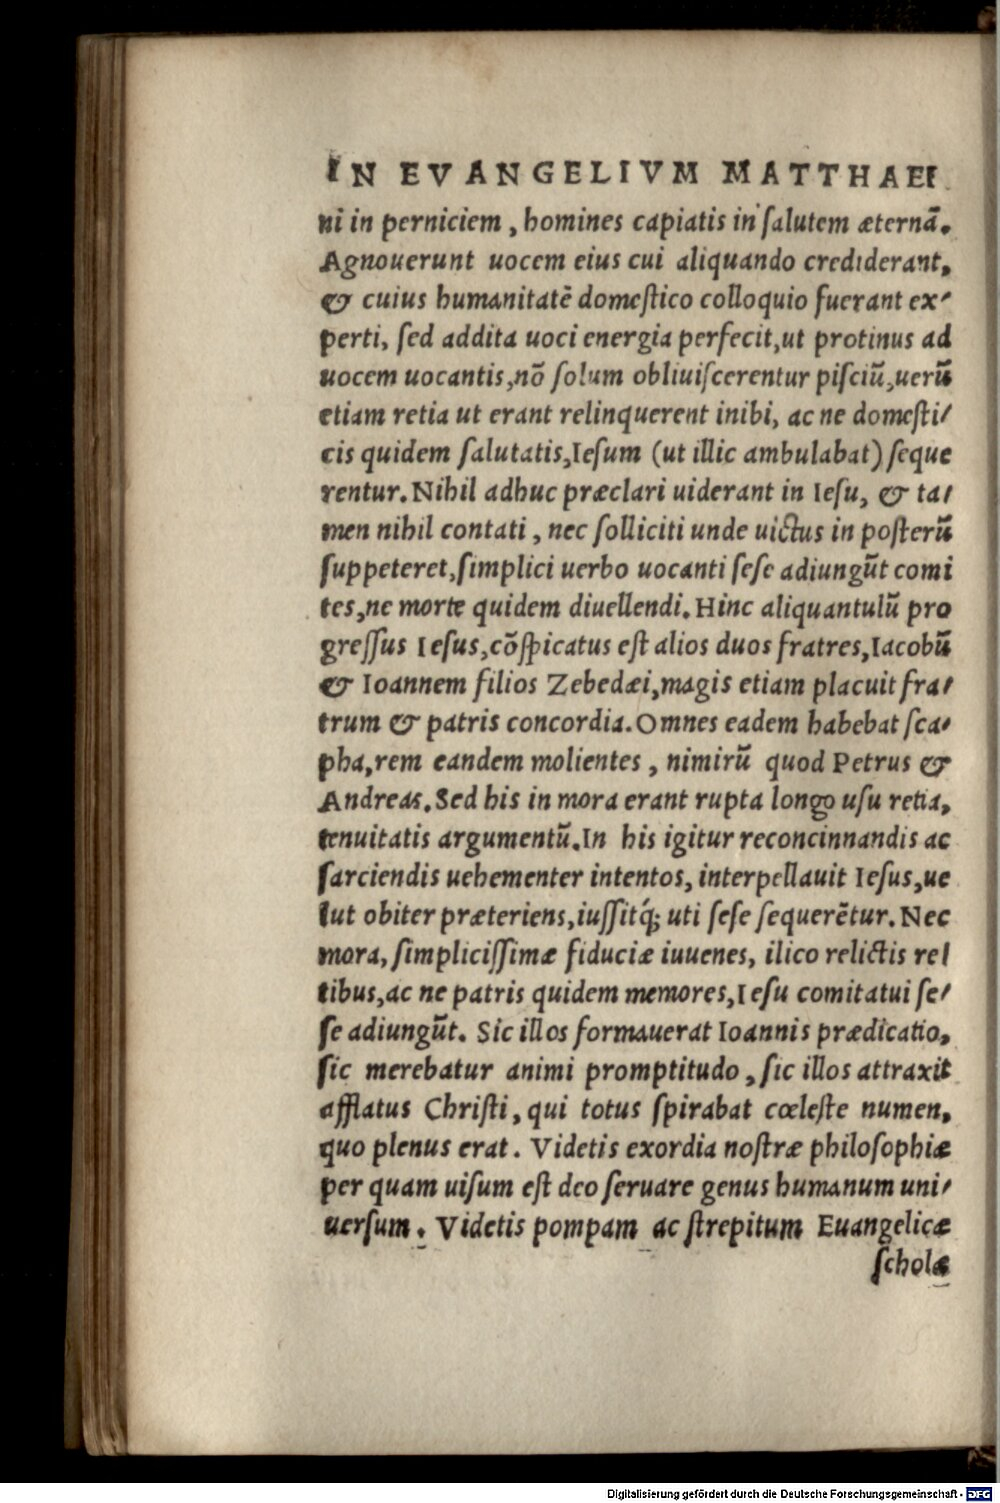 IN EVANGELIVM MATTHAEI
ni in perniciem, homines capiatis in salutem æternā.
Agnouerunt uocem eius cui aliquando crediderant,
& cuius humanitatē domestico colloquio fuerant ex-
perti, sed addita uoci energia perfecit, ut protinus ad
uocem uocantis, nō solum obliuiscerentur pisciū, uerū
etiam retia ut erant relinquerent inibi, ac ne domesti-
cis quidem salutatis, Iesum (ut illic ambulabat) seque
rentur. Nihil adhuc præclari uiderant in Iesu, & ta-
men nihil contati, nec solliciti unde uictus in posterū
suppeteret, simplici uerbo uocanti sese adiungūt comi
tes, ne morte quidem diuellendi. Hinc aliquantulū pro
gressus Iesus, cōspicatus est alios duos fratres, Iacobū
& Ioannem filios Zebedæi, magis etiam placuit fra-
trum & patris concordia. Omnes eadem habebat sca-
pha, rem eandem molientes, nimirū quod Petrus &
Andreas. Sed his in mora erant rupta longo usu retia,
tenuitatis argumentū. In his igitur reconcinnandis ac
sarciendis uehementer intentos, interpellauit Iesus, ue
lut obiter præteriens, iussitq́; uti sese sequerētur. Nec
mora, simplicissimæ fiduciæ iuuenes, ilico relictis re-
tibus, ac ne patris quidem memores, Iesu comitatui se-
se adiungūt. Sic illos formauerat Ioannis prædicatio,
sic merebatur animi promptitudo, sic illos attraxit
afflatus Christi, qui totus spirabat cœleste numen,
quo plenus erat. Videtis exordia nostræ philosophiæ
per quam uisum est deo seruare genus humanum uni-
uersum. Videtis pompam ac strepitum Euangelicæ
scholæ
Digitalisierung gefördert durch die Deutsche Forschungsgemeinschaft - DFG